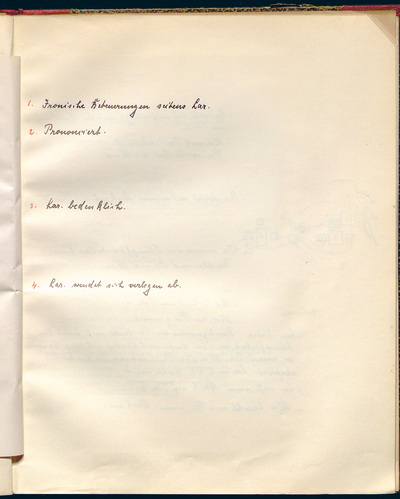 1. Ironische Beteuerungen seitens Kar.
2. Prononciert.
3. Kar. bedenklich.
4. Kar. wendet sich verlegen ab.